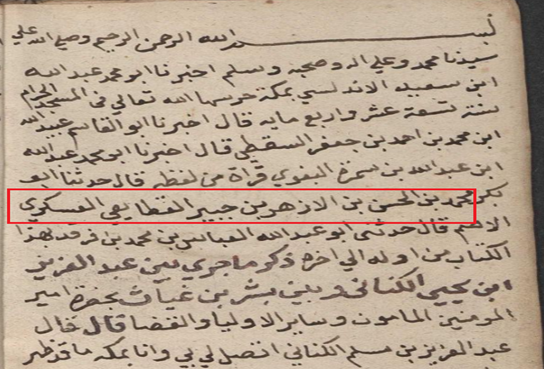 بسم الله الرحمن الرحيم وصلي الله علي
سيدنا محمد وعلي اله وصحبه وسلم اخبرنا ابو محمد عبد الله
ابن سعيد الاندلسي بمكة حرسها الله تعالي في المسجد الحرام
سنة تسعة عشر واربع مايه قال اخبرنا ابو القاسم عبيد الله
ابن محمد بن احمد بن جعفر السقطي قال اخبرنا ابو محمد عبد الله
ابن عبد الله بن البغوي قراة من لفظه قال حدثنا ابو
بكر محمد بن الحسن بن الازهر بن جبير القطايعي العسكري
الاصم قال حدثني ابو عبد الله العباس بن محمد بن فرقد بهذا
الكتاب من اوله الي اخره ذكر ما جري بين عبد العزيز
ابن يحيي الكناني وبين بشر بن غياث بحضرة امير
المومنين المامون وساير الاوليا والقضا قال قال
عبد العزيز بن مسلم الكناني اتصل لي وانا بمكه ما قد ظهر